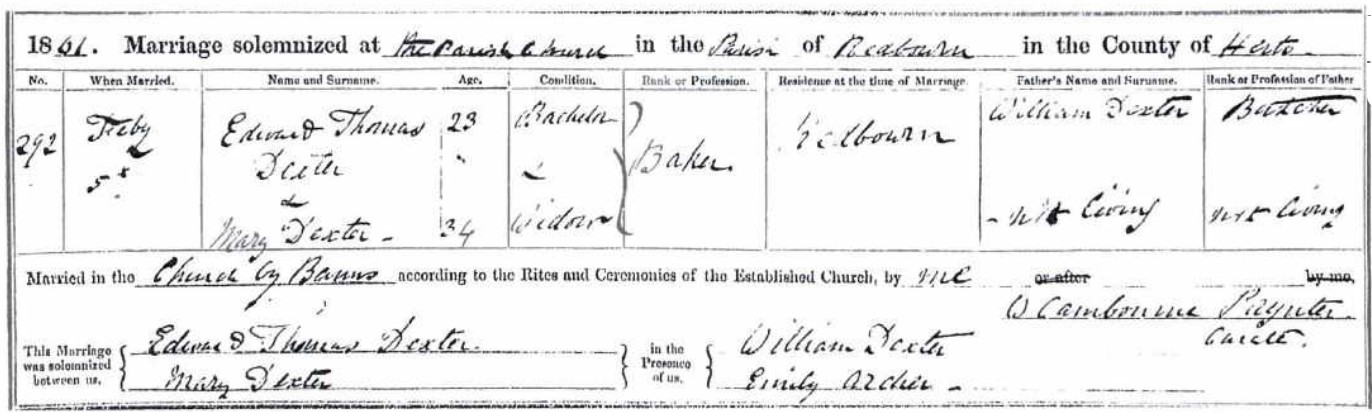 1861. Marriage solemnized at the Parish Church in the Parish of Redbourn in the County of Herts
No. When Married. Name and Surname. Age. Condition. Rank or Profession. Residence at the time of Marriage. Father's Name and Surname. Rank or Profession of Father
292 Feby 5th Edward Thomas Dexter & Mary Dexter 23 " 34 Bachelor & Widow Baker. Redbourn William Dexter - not living Butcher not living
Married in the Church by Banns according to the Rites and Ceremonies of the Established Church, by me or after by me,
Cambourne Paynter.
Curate.
This Marriage was solemnized between us, { Edward Thomas Dexter. } in the Presence of us, { William Dexter
Mary Dexter Emily Archer -